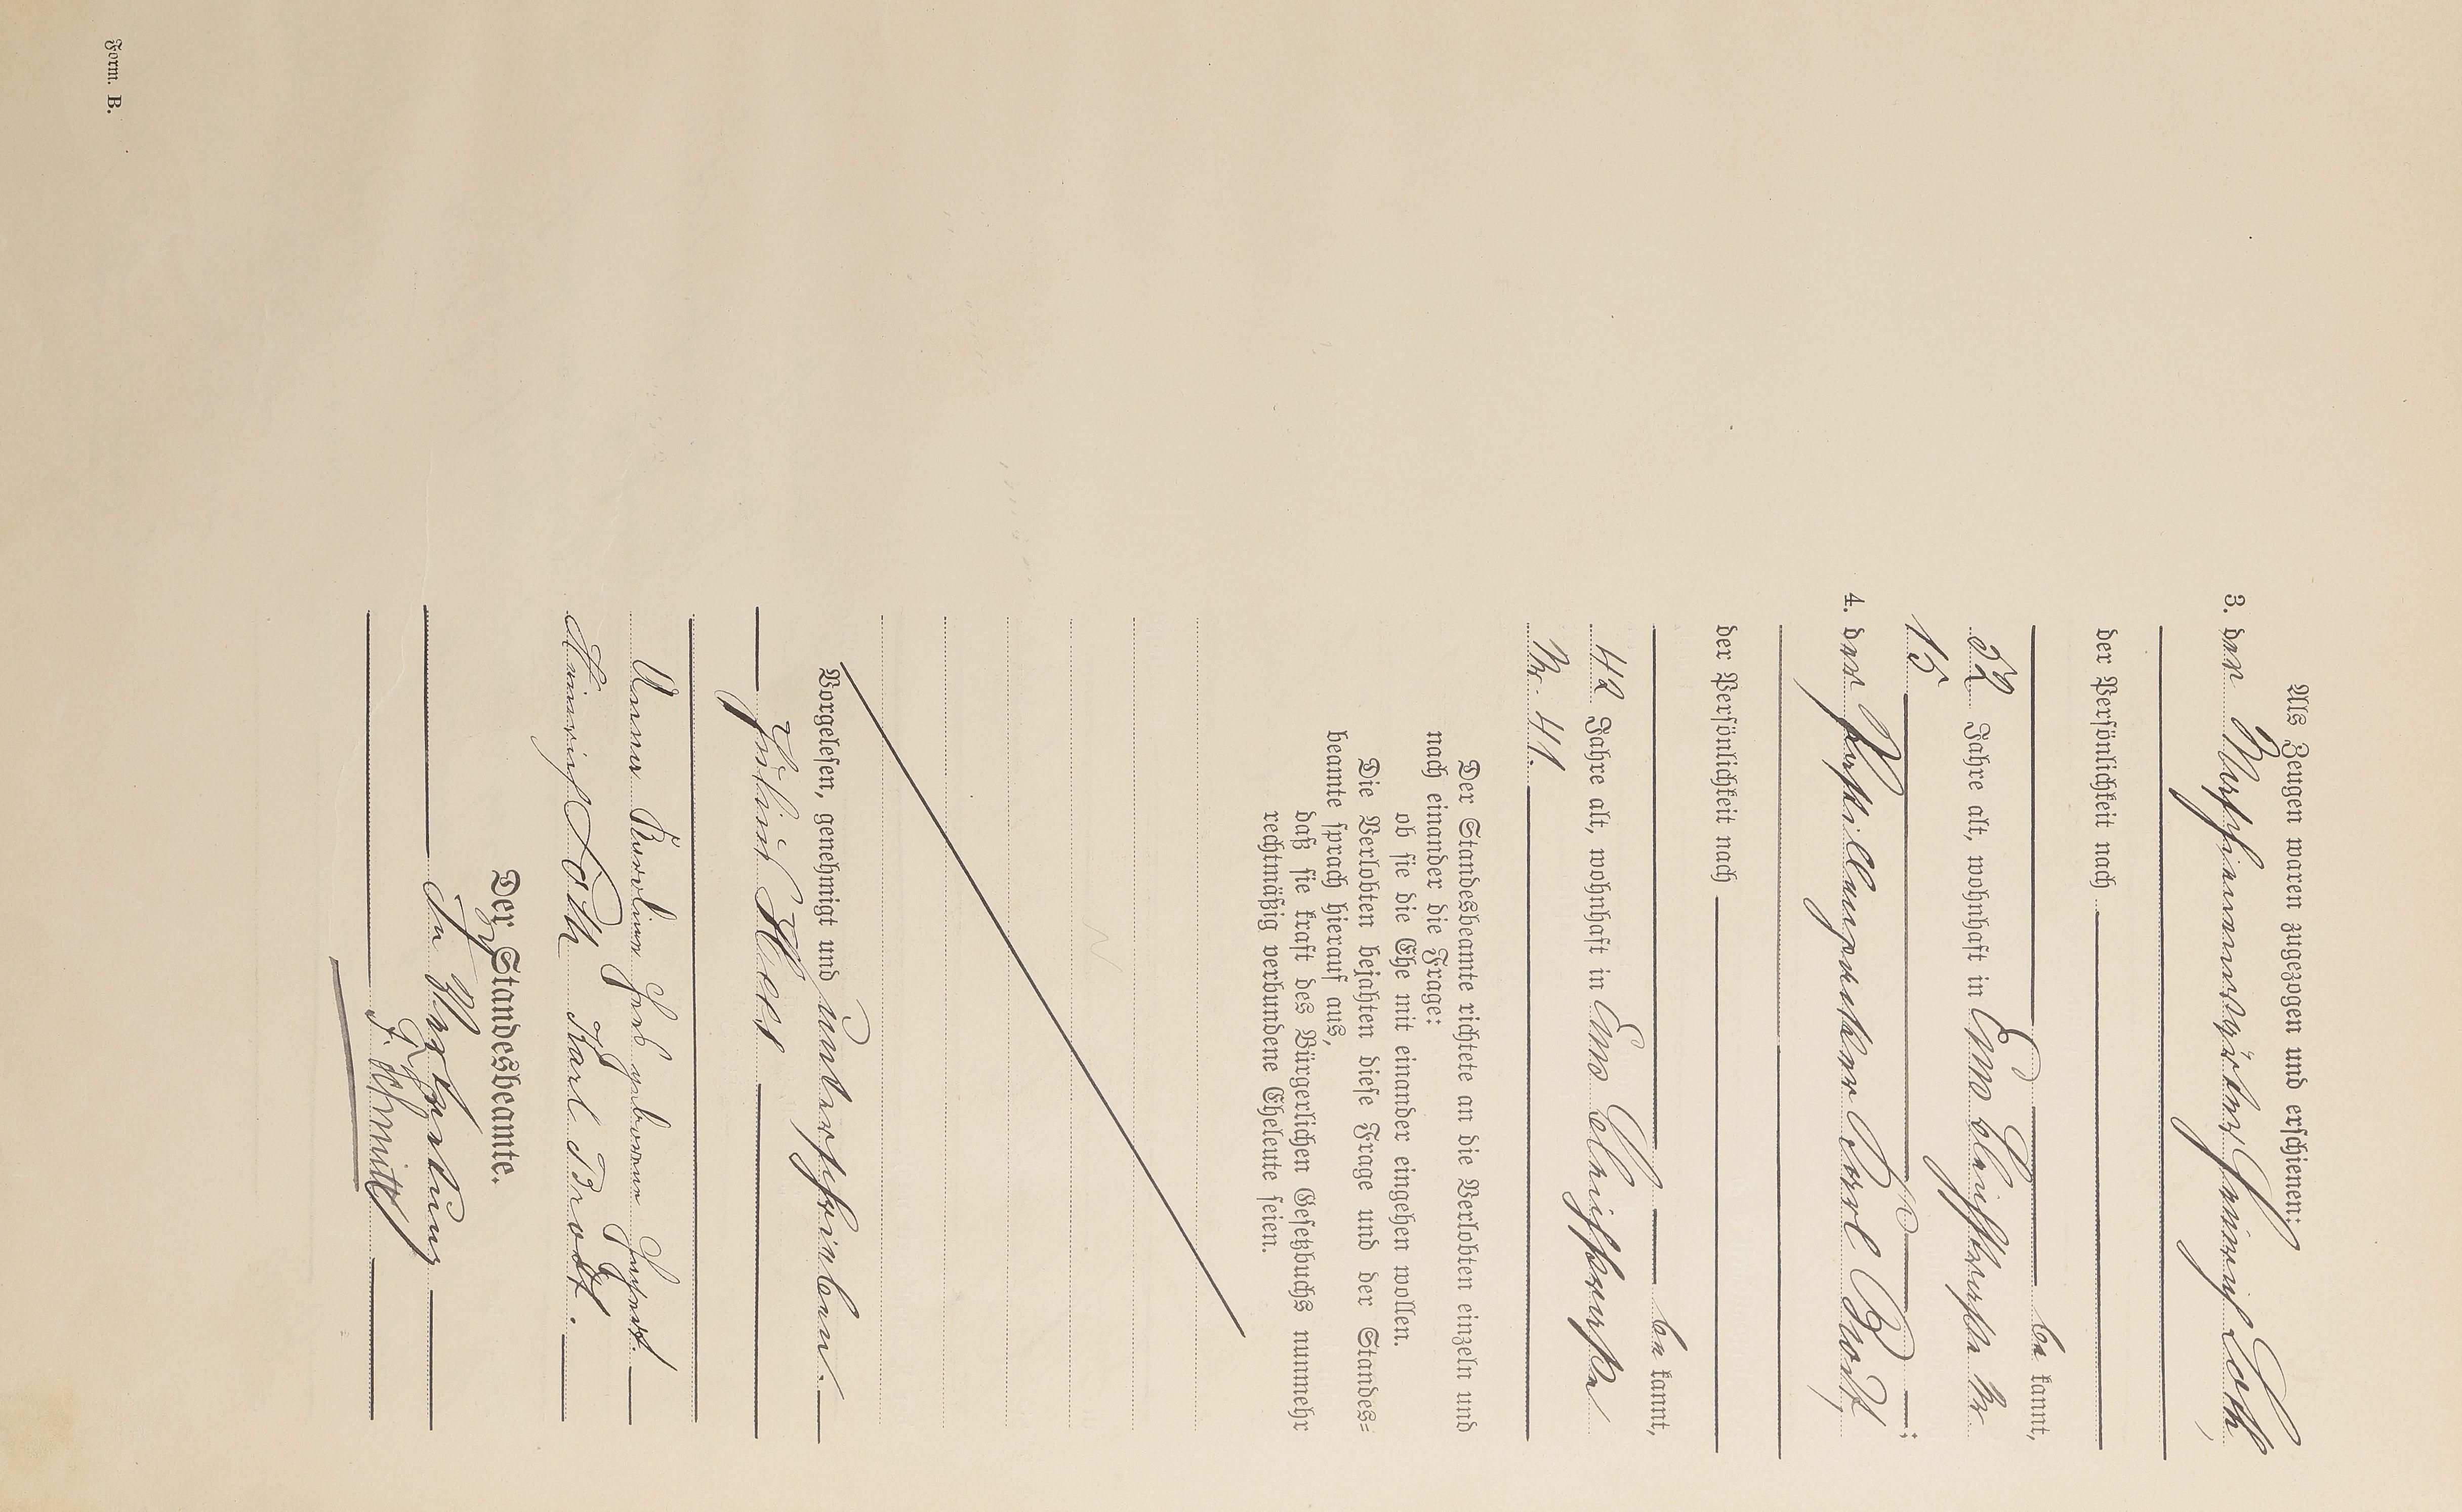 Als Zeugen waren zugezogen und erschienen:
3. der Maschinenwärter Heinrich Loth,
der Persönlichkeit nach
be kannt,
32 Jahre alt, wohnhaft in Ems Bleichstraße Nr
15 ;
4. der Karl Brodt,
der Persönlichkeit nach
be kannt,
42 Jahre alt, wohnhaft in Ems
Nr. 41.
Der Standesbeamte richtete an die Verlobten einzeln und
nach einander die Frage:
ob sie die Ehe mit einander eingehen wollen.
Die Verlobten bejahten diese Frage und der Standes=
beamte sprach hierauf aus,
daß sie kraft des Bürgerlichen Gesetzbuchs nunmehr
rechtmäßig verbundene Eheleute seien.
Vorgelesen, genehmigt und unterschrieben.
Julius
Anna Karoline geborene
Heinrich Loth Karl Brodt.
Der Standesbeamte.
In Vertretung
F. Schmitt
Form. B.